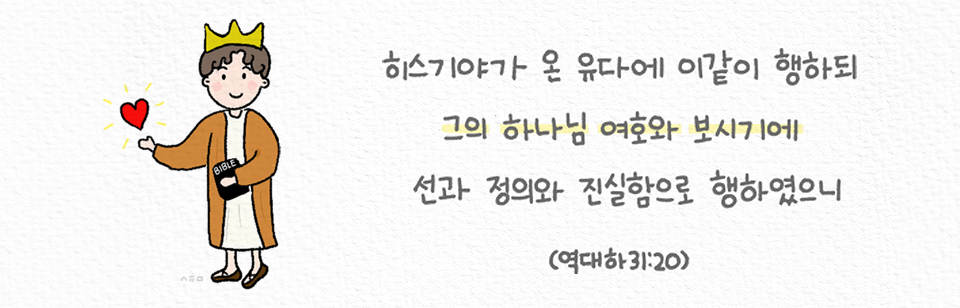 히스기야가 온 유다에 이같이 행하되
그의 하나님 여호와 보시기에
선과 정의와 진실함으로 행하였으니
(역대하31:20)
BIBLE